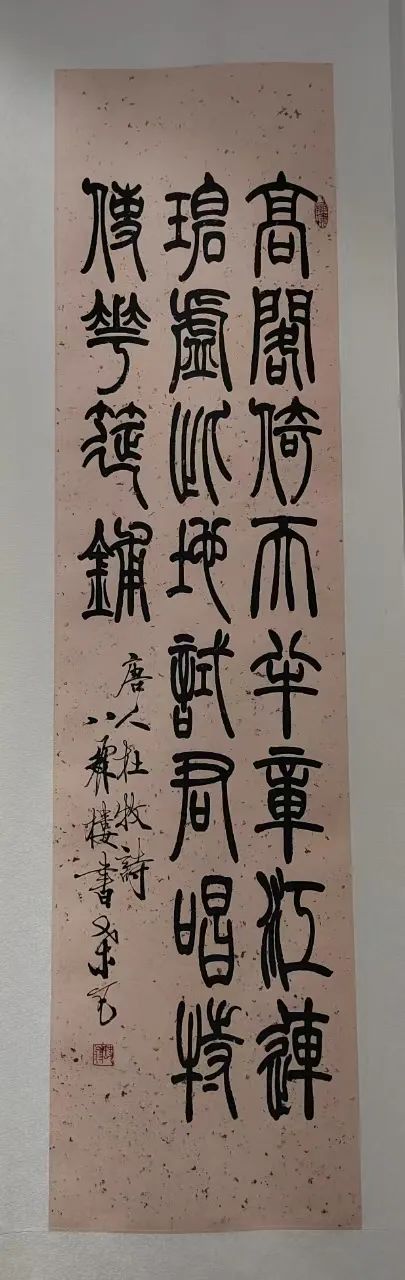 高閣倚天半章江連
碧虛此地試君唱特
使華筵鋪
唐人杜牧詩
八 樓書